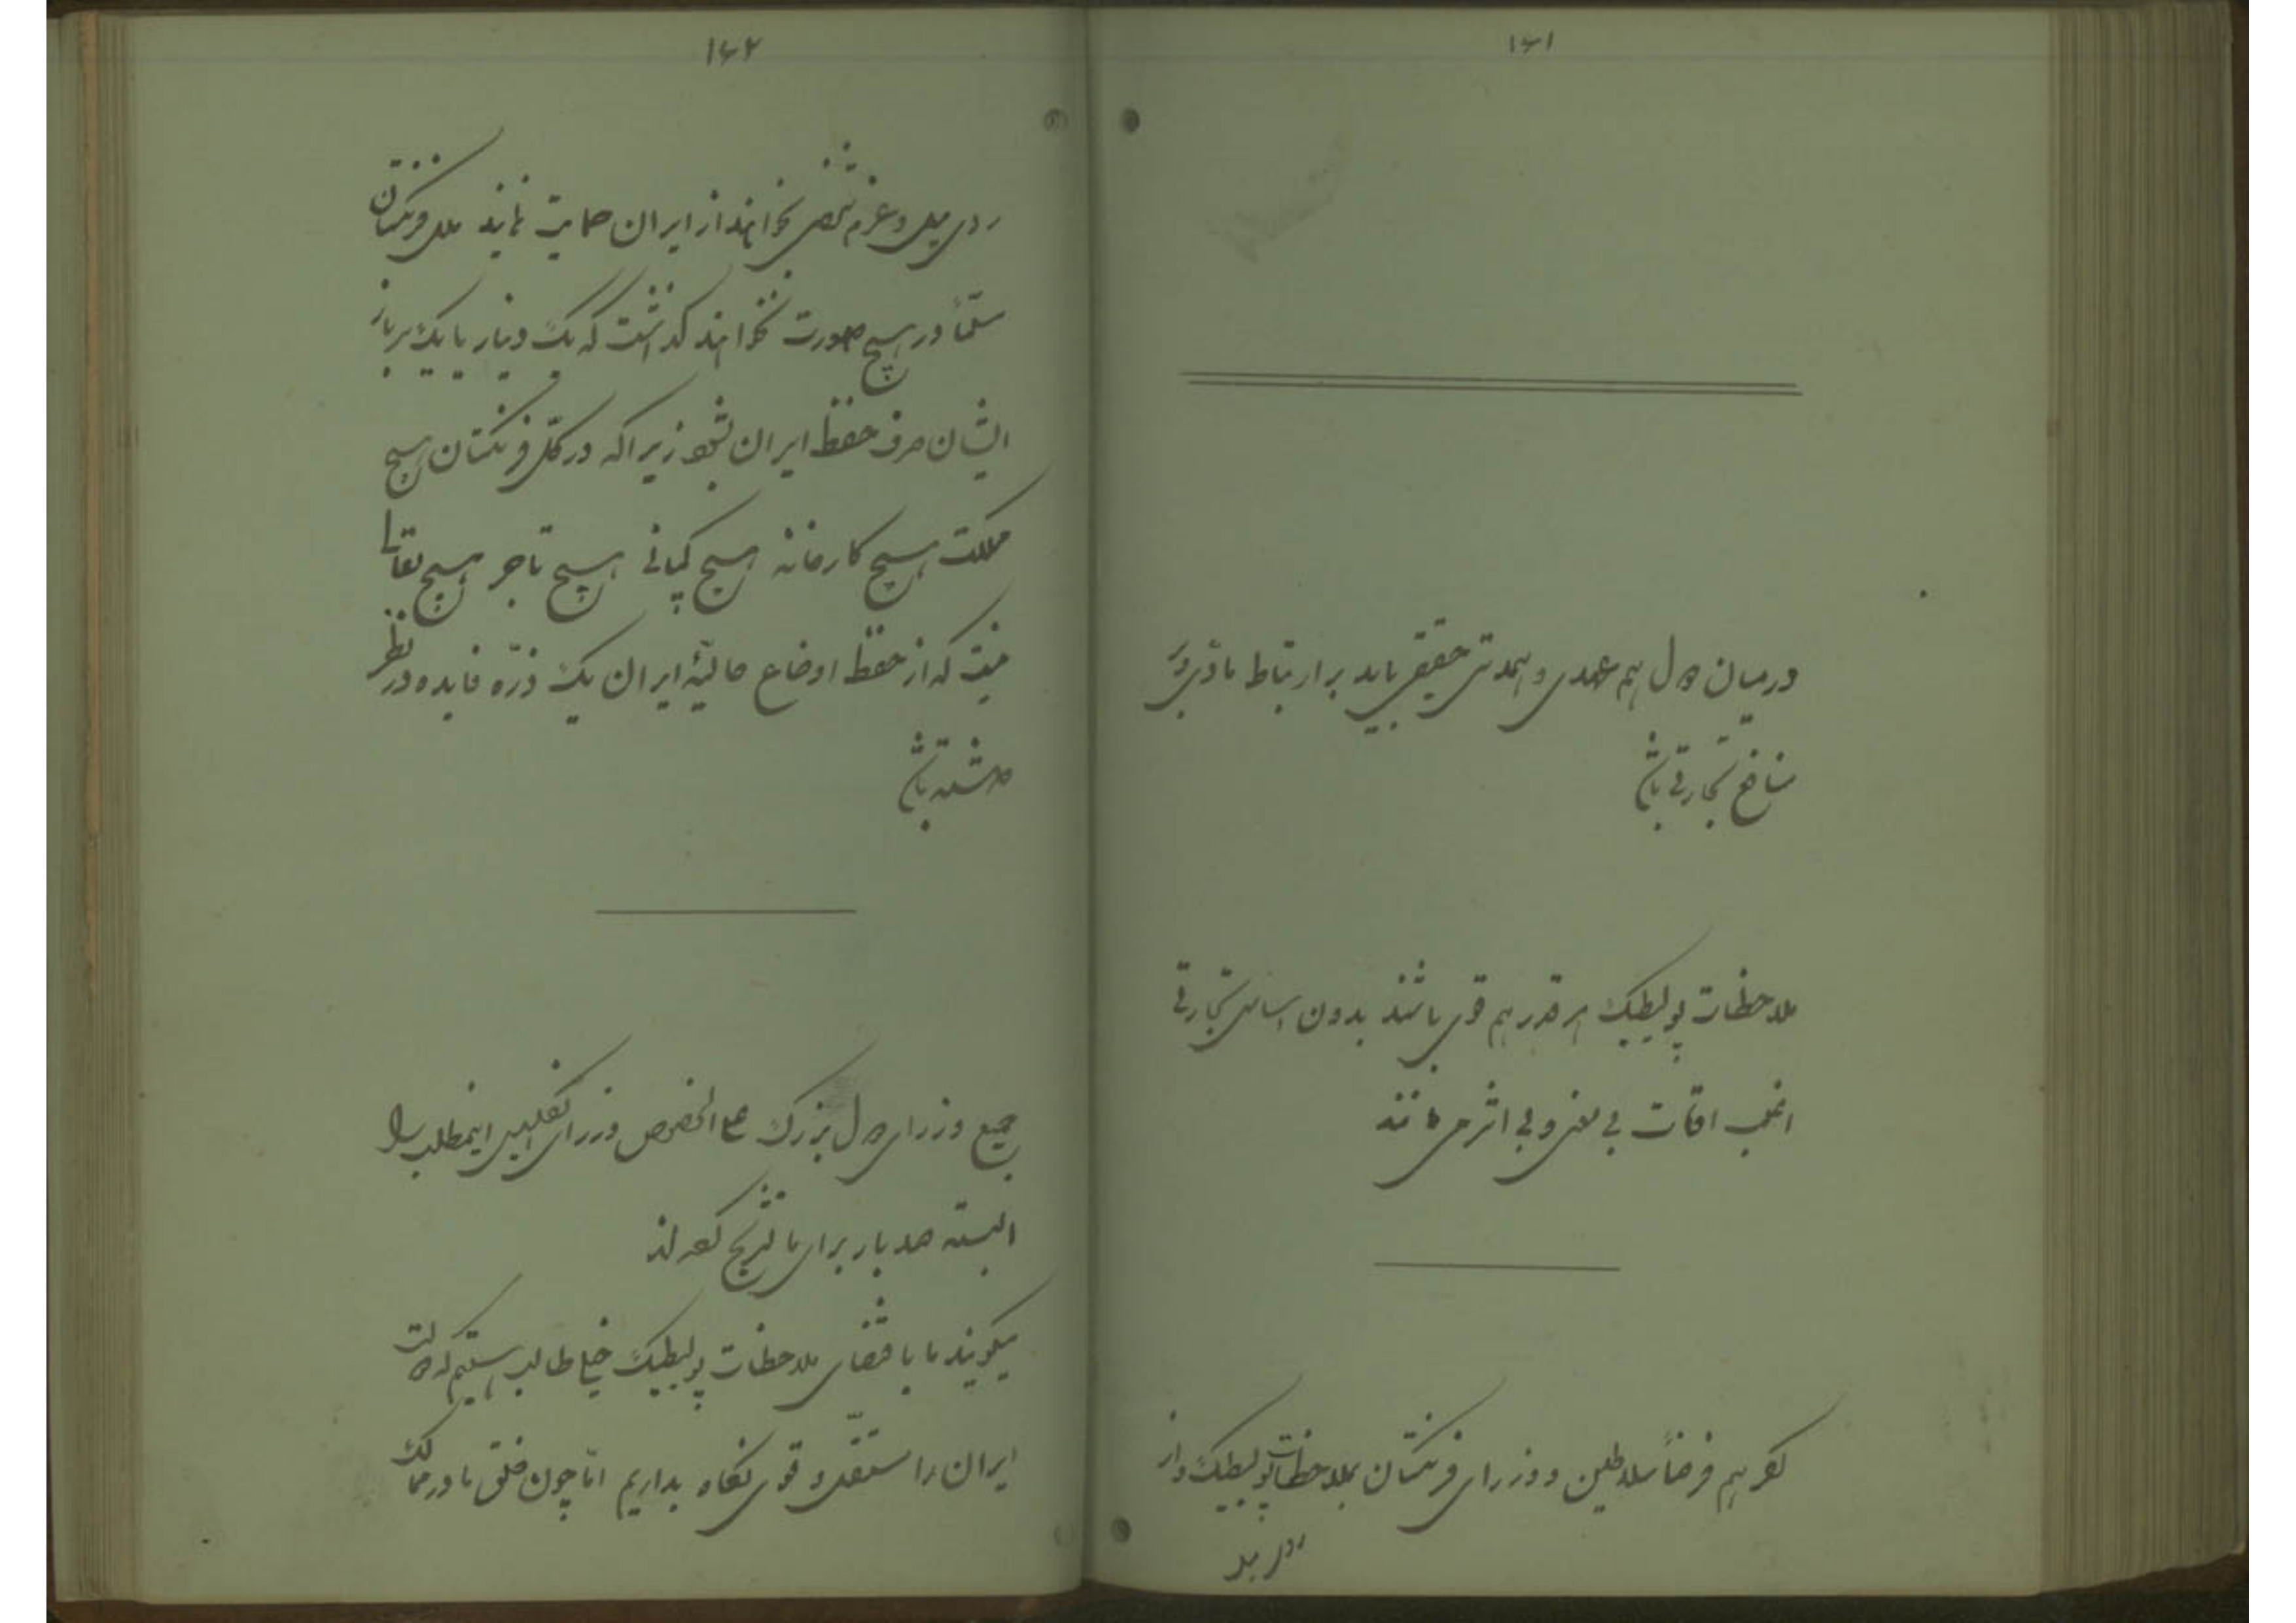 ۱۶۱
در میان دول هم عهدی و همدستی حقیقی باید بر ارتباط مادی و بر
منافع تجارتی باشد
ملاحظات پولیطیک هر قدر هم قوی باشند بدون اساس تجارتی
اغلب اوقات بی معنی و بی اثر می مانند
اگر هم فرضاً سلاطین و وزرای فرنگستان بملاحظات پولیطیک و از
روی میل
۱۶۲
روی میل و عزم شخصی بخواهند از ایران حمایت نمایند ملل فرنگستان
مسلّماً در هیچ صورت نخواهند گذاشت که یک دینار یا یک سرباز
ایشان صرف حفظ ایران بشود زیرا که در کلّ فرنگستان هیچ
مملکت هیچ کارخانه هیچ کمپانی هیچ تاجر هیچ بقالی
نیست که از حفظ اوضاع حالیّهٔ ایران یک ذرّه فایده در نظر
داشته باشد
جمیع وزرای دول بزرگ علی الخصوص وزرای انگلیس اینمطلب را
البته صد بار برای ما تشریح کرده اند
میگویند ما باقتضای ملاحظات پولیطیک خیلی طالب هستیم که دولت
ایران را مستقلّ و قوی نگاه بداریم امّا چون خلق ما در ممالک